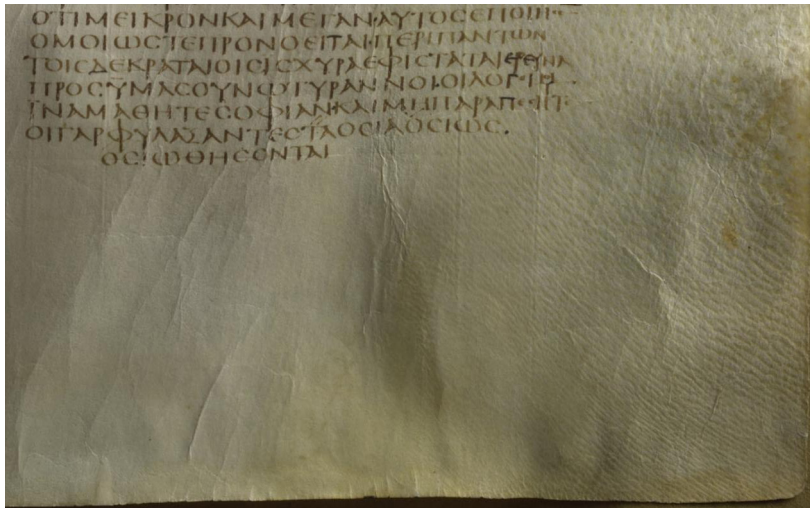 ΟΤΙΜΕΙΚΡΟΝΚΑΙΜΕΓΑΝΑΥΤΟΣΕΠΟΙΗ
ΟΜΟΙΩΣΤΕΠΡΟΝΟΕΙΤΑΙΠΕΡΙΠΑΝΤΩΝ
ΤΟΙΣΔΕΚΡΑΤΑΙΟΙΣΙΣΧΥΡΑΕΦΙΣΤΑΤΑΙΕΡΕΥΝΑ
ΠΡΟΣΥΜΑΣΟΥΝΩΤΥΡΑΝΝΟΙΟΙΛΟΓΟΙΜ
ΪΝΑΜΑΘΗΤΕΣΟΦΙΑΝΚΑΙΜΗΠΑΡΑΠΕΣΗΤ
ΟΙΓΑΡΦΥΛΑΞΑΝΤΕΣΤΑΟΣΙΑΟΣΙΩΣ.
ΟΣΙΩΘΗΣΟΝΤΑΙ